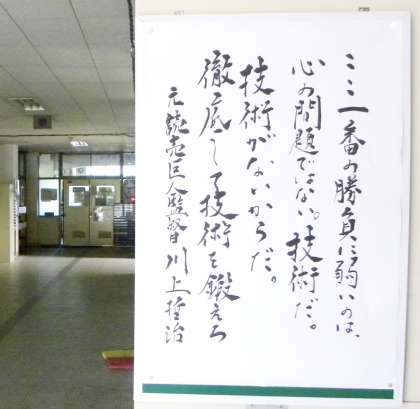 ここ一番の勝負に弱いのは、
心の問題ではない。技術だ。
技術がないからだ。
徹底して技術を鍛えろ
元読売巨人監督 川上哲治